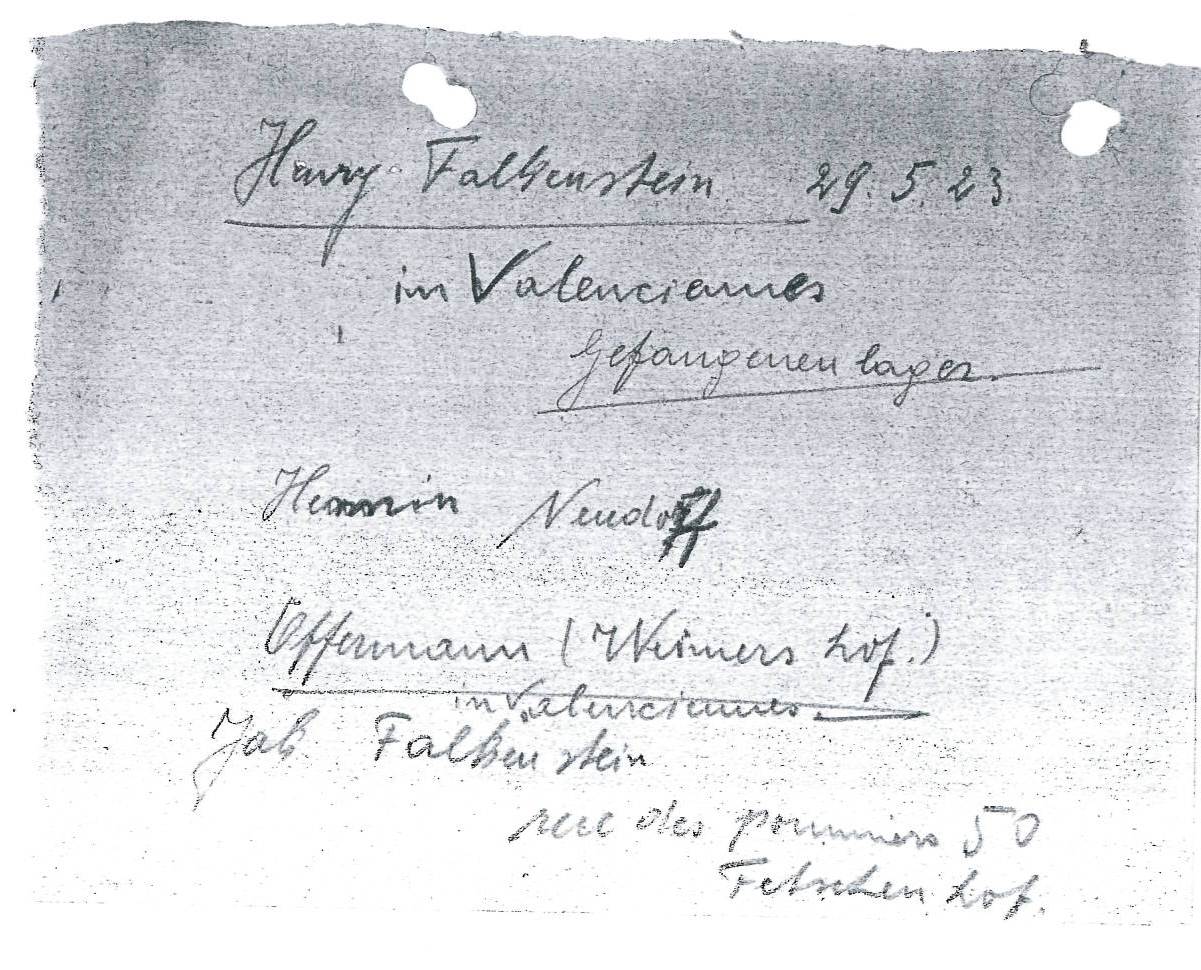 Henry Falkenstein 29.5.23.
in Valenciennes
Gefangenenlager.
Neudorff
Offermann (Weimers hof.)
in Valenciennes.
Jak. Falkenstein
rue des pommiers 50
Fetschen hof.